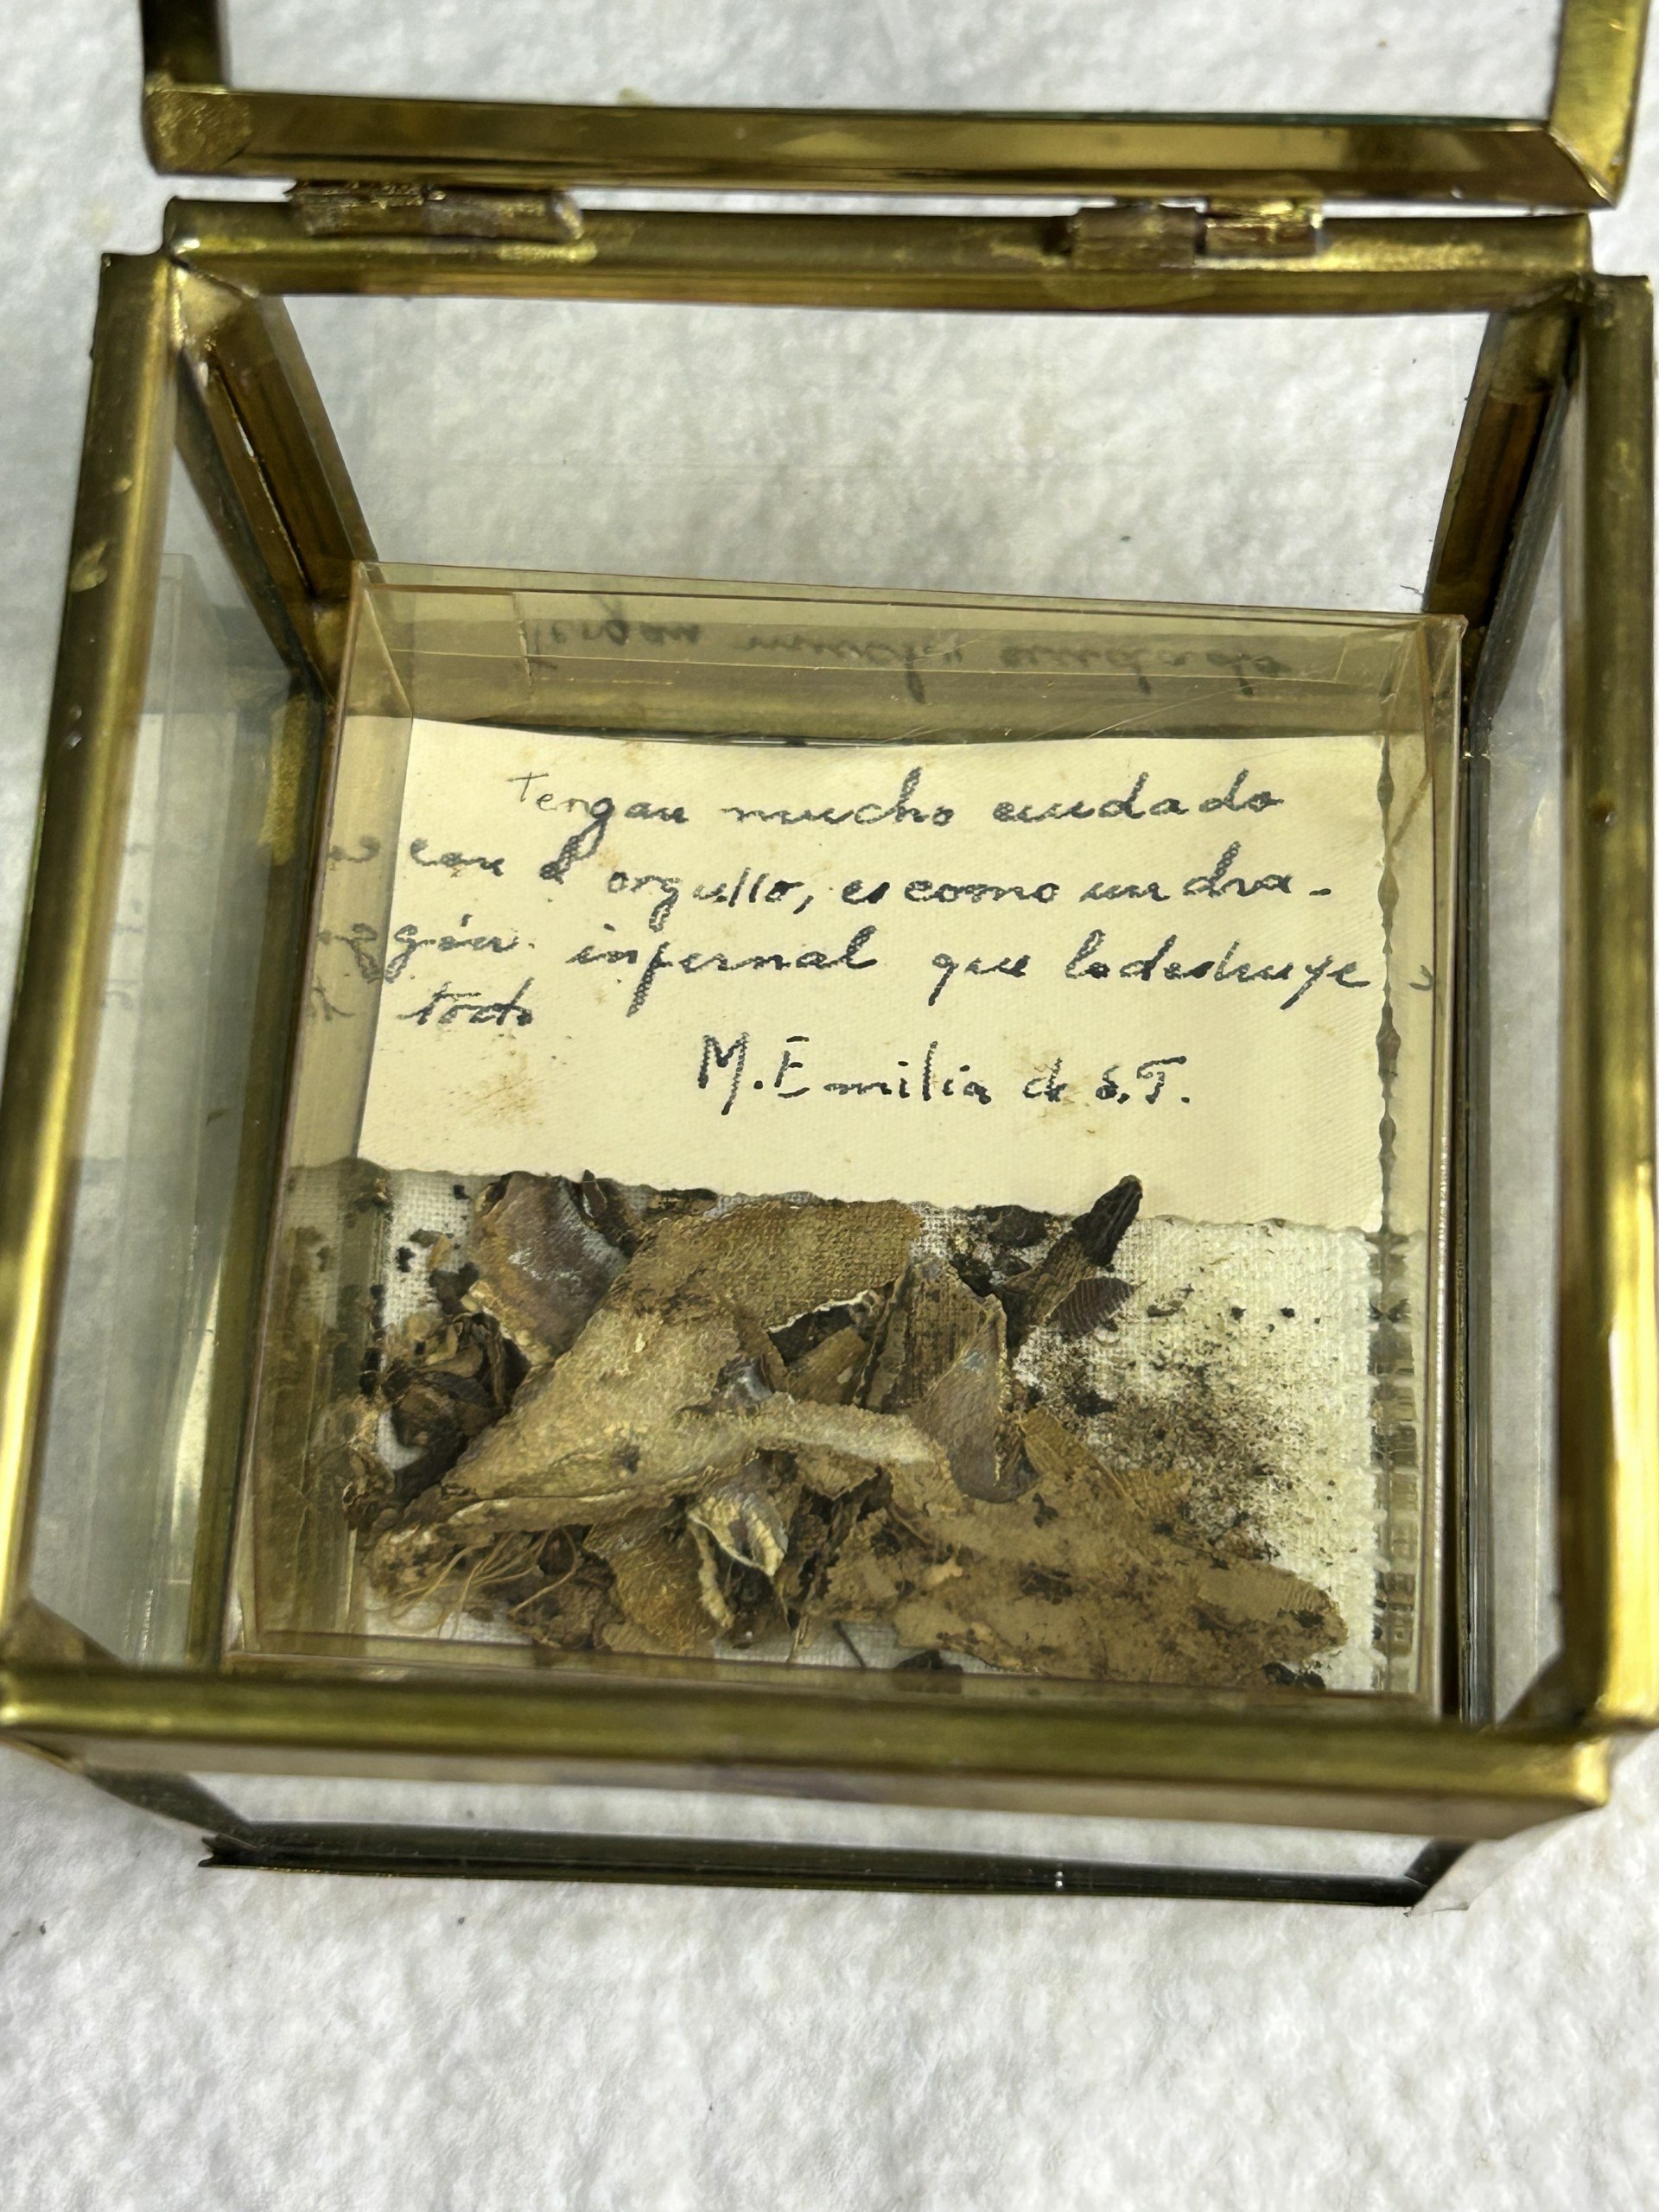 Tengan mucho cuidado
con el orgullo, es como un dra-
gón infernal que lo destruye
todo
M. Emilia de S. T.